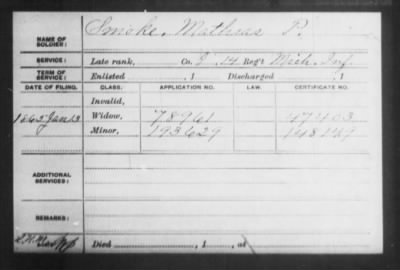 NAME OF SOLDIER: Smoke, Mathias P.
SERVICE: Late rank, Co. E, 14 Reg't Mich. Inf.
TERM OF SERVICE: Enlisted , 1 Discharged , 1
DATE OF FILING. CLASS. APPLICATION NO. LAW. CERTIFICATE NO.
Invalid,
1865 Jan 13 Widow, 78961 47403
Minor, 193629 148149
ADDITIONAL SERVICES:
REMARKS:
Died , 1 , at